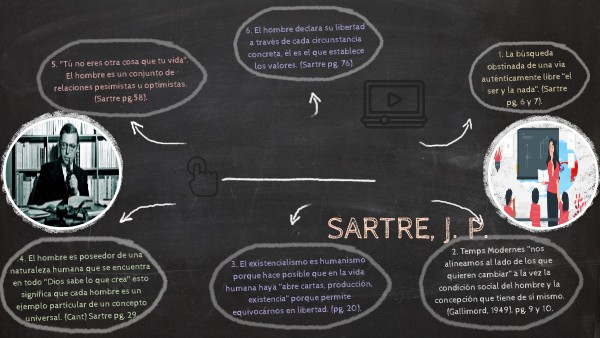 6. El hombre declara su libertad
a través de cada circunstancia
concreta, él es el que establece
los valores. (Sartre pg, 76).
5. "Tú no eres otra cosa que tu vida".
El hombre es un conjunto de
relaciones pesimistas u optimistas.
(Sartre pg.58).
1. La búsqueda
obstinada de una vía
auténticamente libre "el
ser y la nada". (Sartre
pg, 6 y 7).
SARTRE, J. P.
4. El hombre es poseedor de una
naturaleza humana que se encuentra
en todo "Dios sabe lo que crea" esto
significa que cada hombre es un
ejemplo particular de un concepto
universal. (Cant) Sartre pg. 29
3. El existencialismo es humanismo
porque hace posible que en la vida
humana haya "abre cartas, producción,
existencia" porque permite
equivocárnos en libertad. (pg. 20).
2. Temps Modernes "nos
alineamos al lado de los que
quieren cambiar" a la vez la
condición social del hombre y la
concepción que tiene de si mismo.
(Gallimord, 1949). pg, 9 y 10.